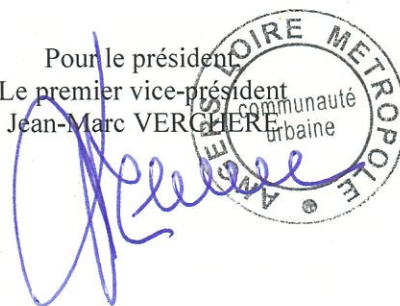 Pour le président
Le premier vice-président
Jean-Marc VERCHERE
ANGERS LOIRE METROPOLE
communauté
urbaine